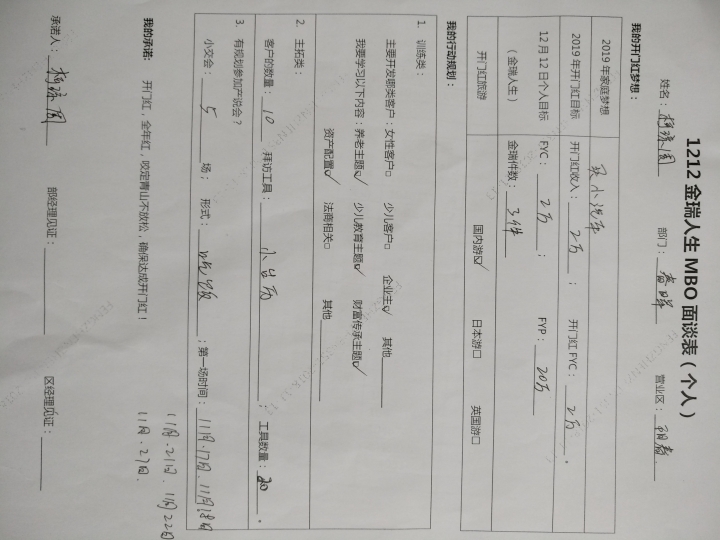 1212 金瑞人生 MBO 面谈表（个人）
姓名： 部门：春晖 营业区：
我的开门红梦想：
2019 年家庭梦想 买小汽车
2019 年开门红目标 开门红收入：2万； 开门红 FYC：2万。
12 月 12 日个人目标 FYC：2万； FYP：20万
（金瑞人生） 金瑞件数：3件
开门红旅游 国内游☑ 日本游□ 英国游□
我的行动规划：
1. 训练类：
主要开发哪类客户：女性客户□ 少儿客户□ 企业主☑ 其他
我要学习以下内容：养老主题☑ 少儿教育主题☑ 财富传承主题☑
资产配置☑ 法商相关□ 其他
2. 主拓类：
客户的数量：10 拜访工具：小台历； 工具数量：20。
3. 有规划参加产说会？
小交会：5 场； 形式：吃饭；第一场时间：11月.17日.11月18日
11月.21日.11月22日
11月.27日.
我的承诺: 开门红，全年红，咬定青山不放松，确保达成开门红！
承诺人： 部经理见证： 区经理见证：